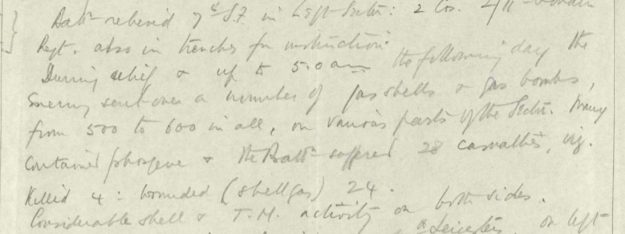 Batt: relieved 7th S.F. in Left Sector: 2 Cos. 4/11
Regt. also in trenches for instruction.
During relief & up to 5.0 am the following day the
Enemy sent over a number of gas shells & gas bombs,
from 500 to 600 in all, on various parts of the Sector. Many
contained phosgene & the Batt: suffered 28 casualties, viz.
Killed 4: wounded (shell gas) 24.
Considerable shell & T.M. activity on both sides.
Leicesters on left